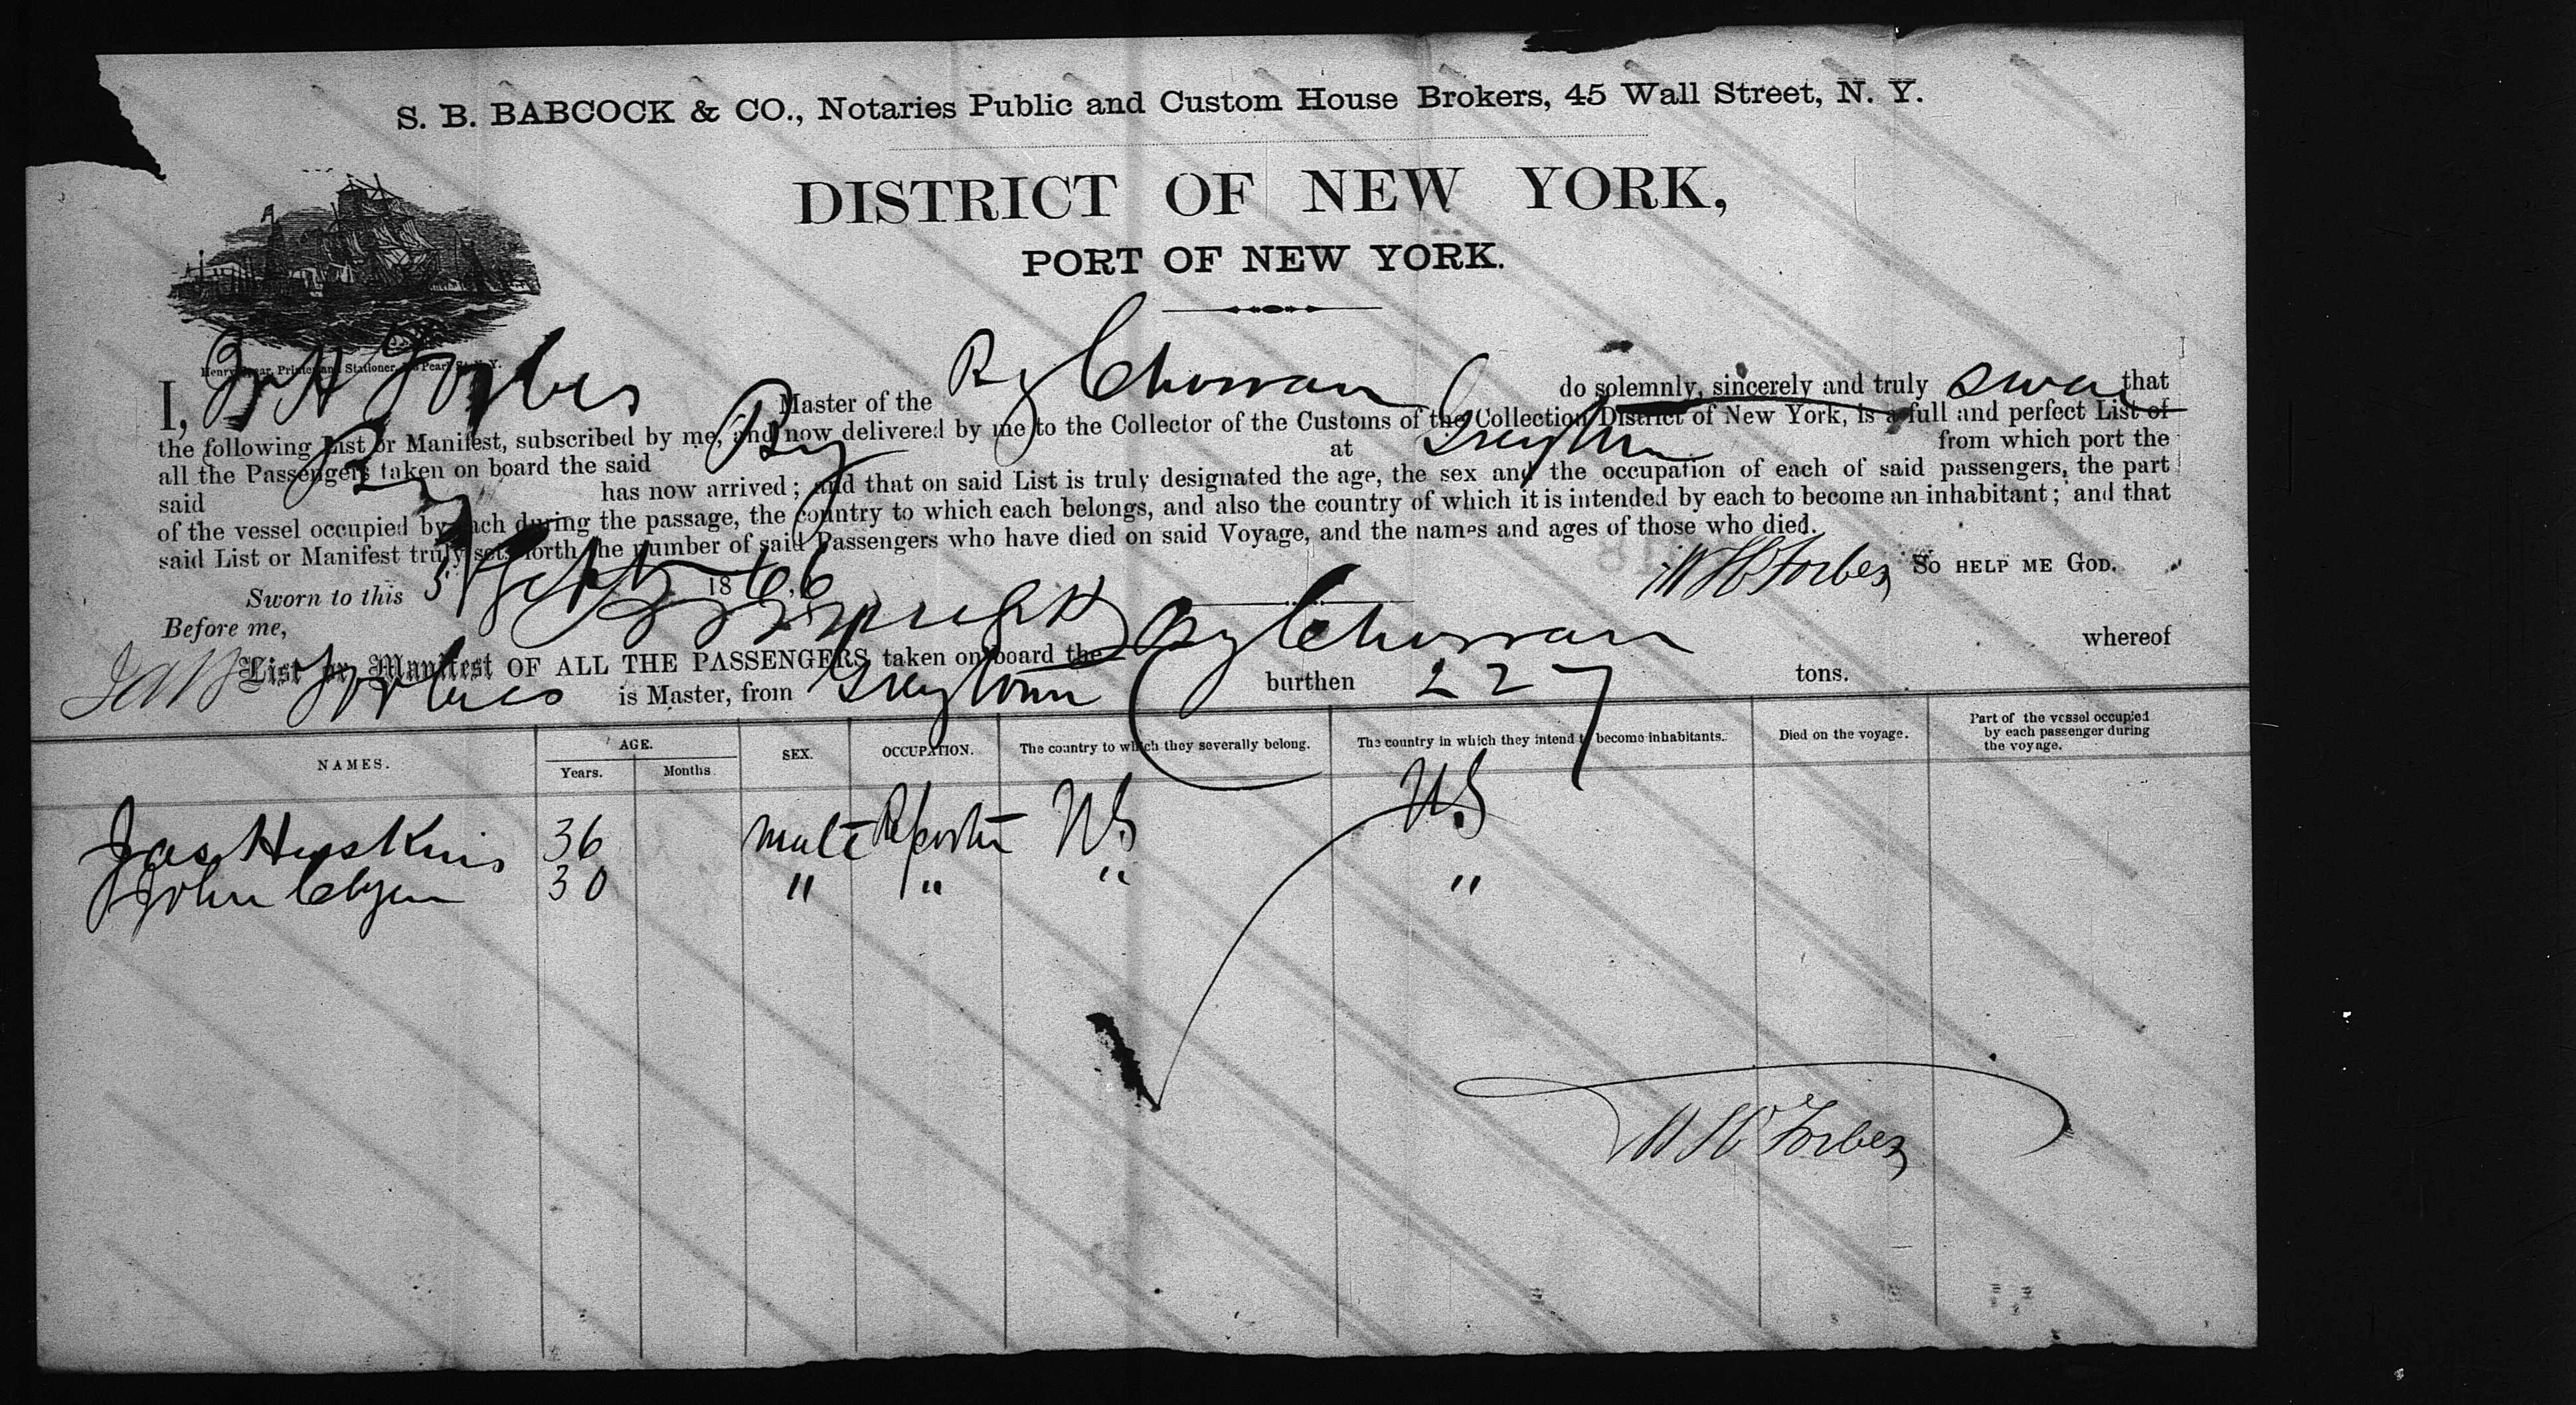 S. B. BABCOCK & CO., Notaries Public and Custom House Brokers, 45 Wall Street, N. Y.
DISTRICT OF NEW YORK,
PORT OF NEW YORK.
Henry Spear, Printer and Stationer, Pearl St. N. Y.
I, Forbes Master of the Bg Chowan do solemnly, sincerely and truly swear that
the following List or Manifest, subscribed by me, and now delivered by me to the Collector of the Customs of the Collection District of New York, is a full and perfect List of
all the Passengers taken on board the said Bg at Greytown from which port the
said Bg has now arrived; and that on said List is truly designated the age, the sex and the occupation of each of said passengers, the part
of the vessel occupied by each during the passage, the country to which each belongs, and also the country of which it is intended by each to become an inhabitant; and that
said List or Manifest truly sets forth the number of said Passengers who have died on said Voyage, and the names and ages of those who died.
Sworn to this 5 Sept 1866 W H Forbes SO HELP ME GOD.
Before me,
List or Manifest OF ALL THE PASSENGERS taken on board the Bg Chowan whereof
Forbes is Master, from Greytown burthen 227 tons.
NAMES. AGE. Years. Months. SEX. OCCUPATION. The country to which they severally belong. The country in which they intend to become inhabitants. Died on the voyage. Part of the vessel occupied by each passenger during the voyage.
Jas Huskins 36 Male Reporter US US
John 30 " " " "
W H Forbes